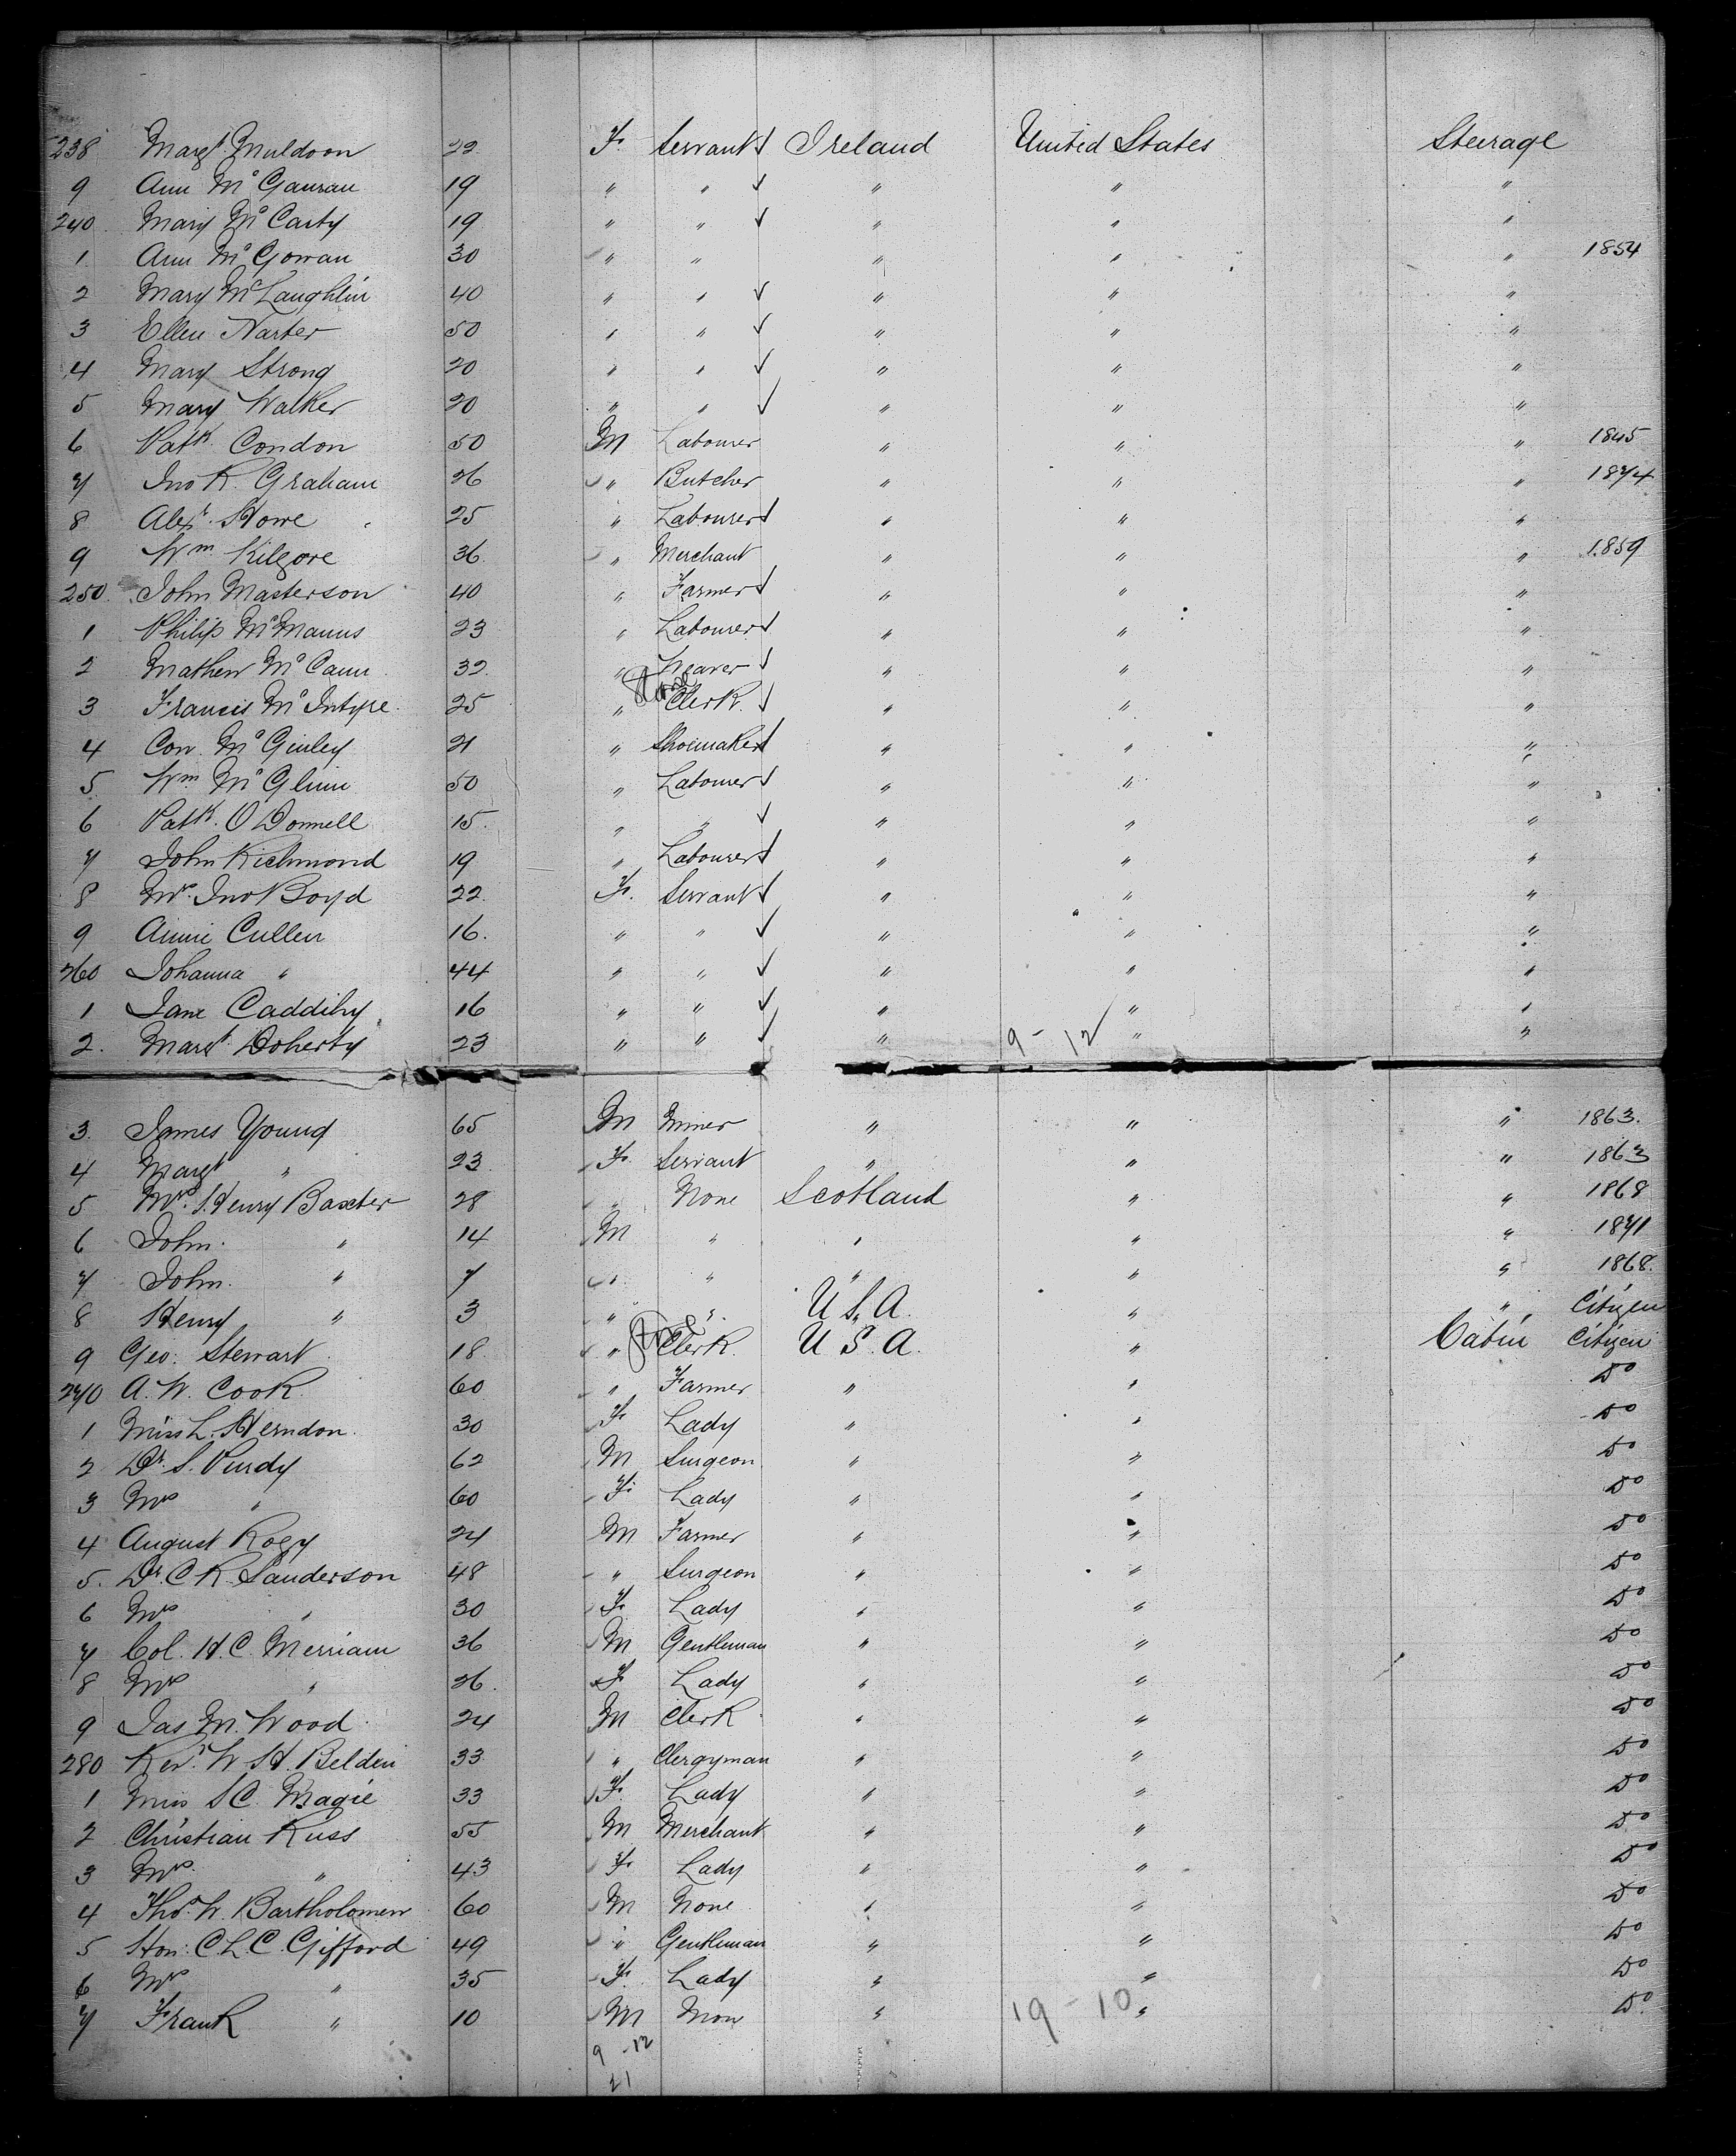 238 Margt Muldoon 22 F. Servant ✓ Ireland United States Steerage
9 Ann McGauran 19 " " ✓ " " "
240 Mary McCarty 19 " " ✓ " " "
1 Ann McGowan 30 " " " " " 1854
2 Mary McLaughlin 40 " " ✓ " " "
3 Ellen Narter 50 " " ✓ " " "
4 Mary Strong 20 " " ✓ " " "
5 Mary Walker 20 " " ✓ " " "
6 Patk. Condon 50 M Labourer " " " 1845
7 Jno R. Graham 26 " Butcher " " " 1874
8 Alexr. Howe 25 " Labourer ✓ " " "
9 Wm Kilgore 36 " Merchant " " " 1859
250 John Masterson 40 " Farmer ✓ " " "
1 Philip McManus 23 " Labourer ✓ " " "
2 Mathew McCann 32 " Weaver ✓ " " "
3 Francis McIntyre 25 " Clerk ✓ " " "
4 Con. McGinley 21 " Shoemaker ✓ " " "
5 Wm McGlinn 50 " Labourer ✓ " " "
6 Patk. O Donnell 15 " " ✓ " " "
7 John Richmond 19 " Labourer ✓ " " "
8 Mrs. Jno Boyd 22 F. Servant ✓ " " "
9 Annie Cullen 16 " " ✓ " " "
260 Johanna " 44 " " ✓ " " "
1 Jane Caddihy 16 " " ✓ " " "
2 Margt. Doherty 23 " " ✓ " 9 - 12 " "
3 James Young 65 M Miner " " " 1863
4 Margt " 23 F. Servant " " " 1863
5 Mrs. Henry Baxter 28 " None Scotland " " 1868
6 John " 14 M " " " " 1871
7 John " 7 " " " " " 1868
8 Henry " 3 " " U.S.A. " " Citizen
9 Geo. Stewart 18 " Clerk U.S.A. " Cabin Citizen
270 A. W. Cook 60 " Farmer " " Do
1 Miss L. Herndon 30 F. Lady " " Do
2 Dr. S. Purdy 62 M Surgeon " " Do
3 Mrs " 60 F. Lady " " Do
4 August Rogy 24 M Farmer " " Do
5 Dr. C R Sanderson 48 " Surgeon " " Do
6 Mrs " 30 F. Lady " " Do
7 Col. H. C. Merriam 36 M Gentleman " " Do
8 Mrs " 26 F Lady " " Do
9 Jas M. Wood 24 M Clerk " " Do
280 Revd. W. H. Belden 33 " Clergyman " " Do
1 Miss S C. Magie 33 F. Lady " " Do
2 Christian Russ 55 M Merchant " " Do
3 Mrs. " 43 F Lady " " Do
4 Thos. W. Bartholomew 60 M None " " Do
5 Hon. C. L. C. Gifford 49 " Gentleman " " Do
6 Mrs " 35 F. Lady " " Do
7 Frank " 10 M Non " 19 - 10 " Do
9 - 12
21